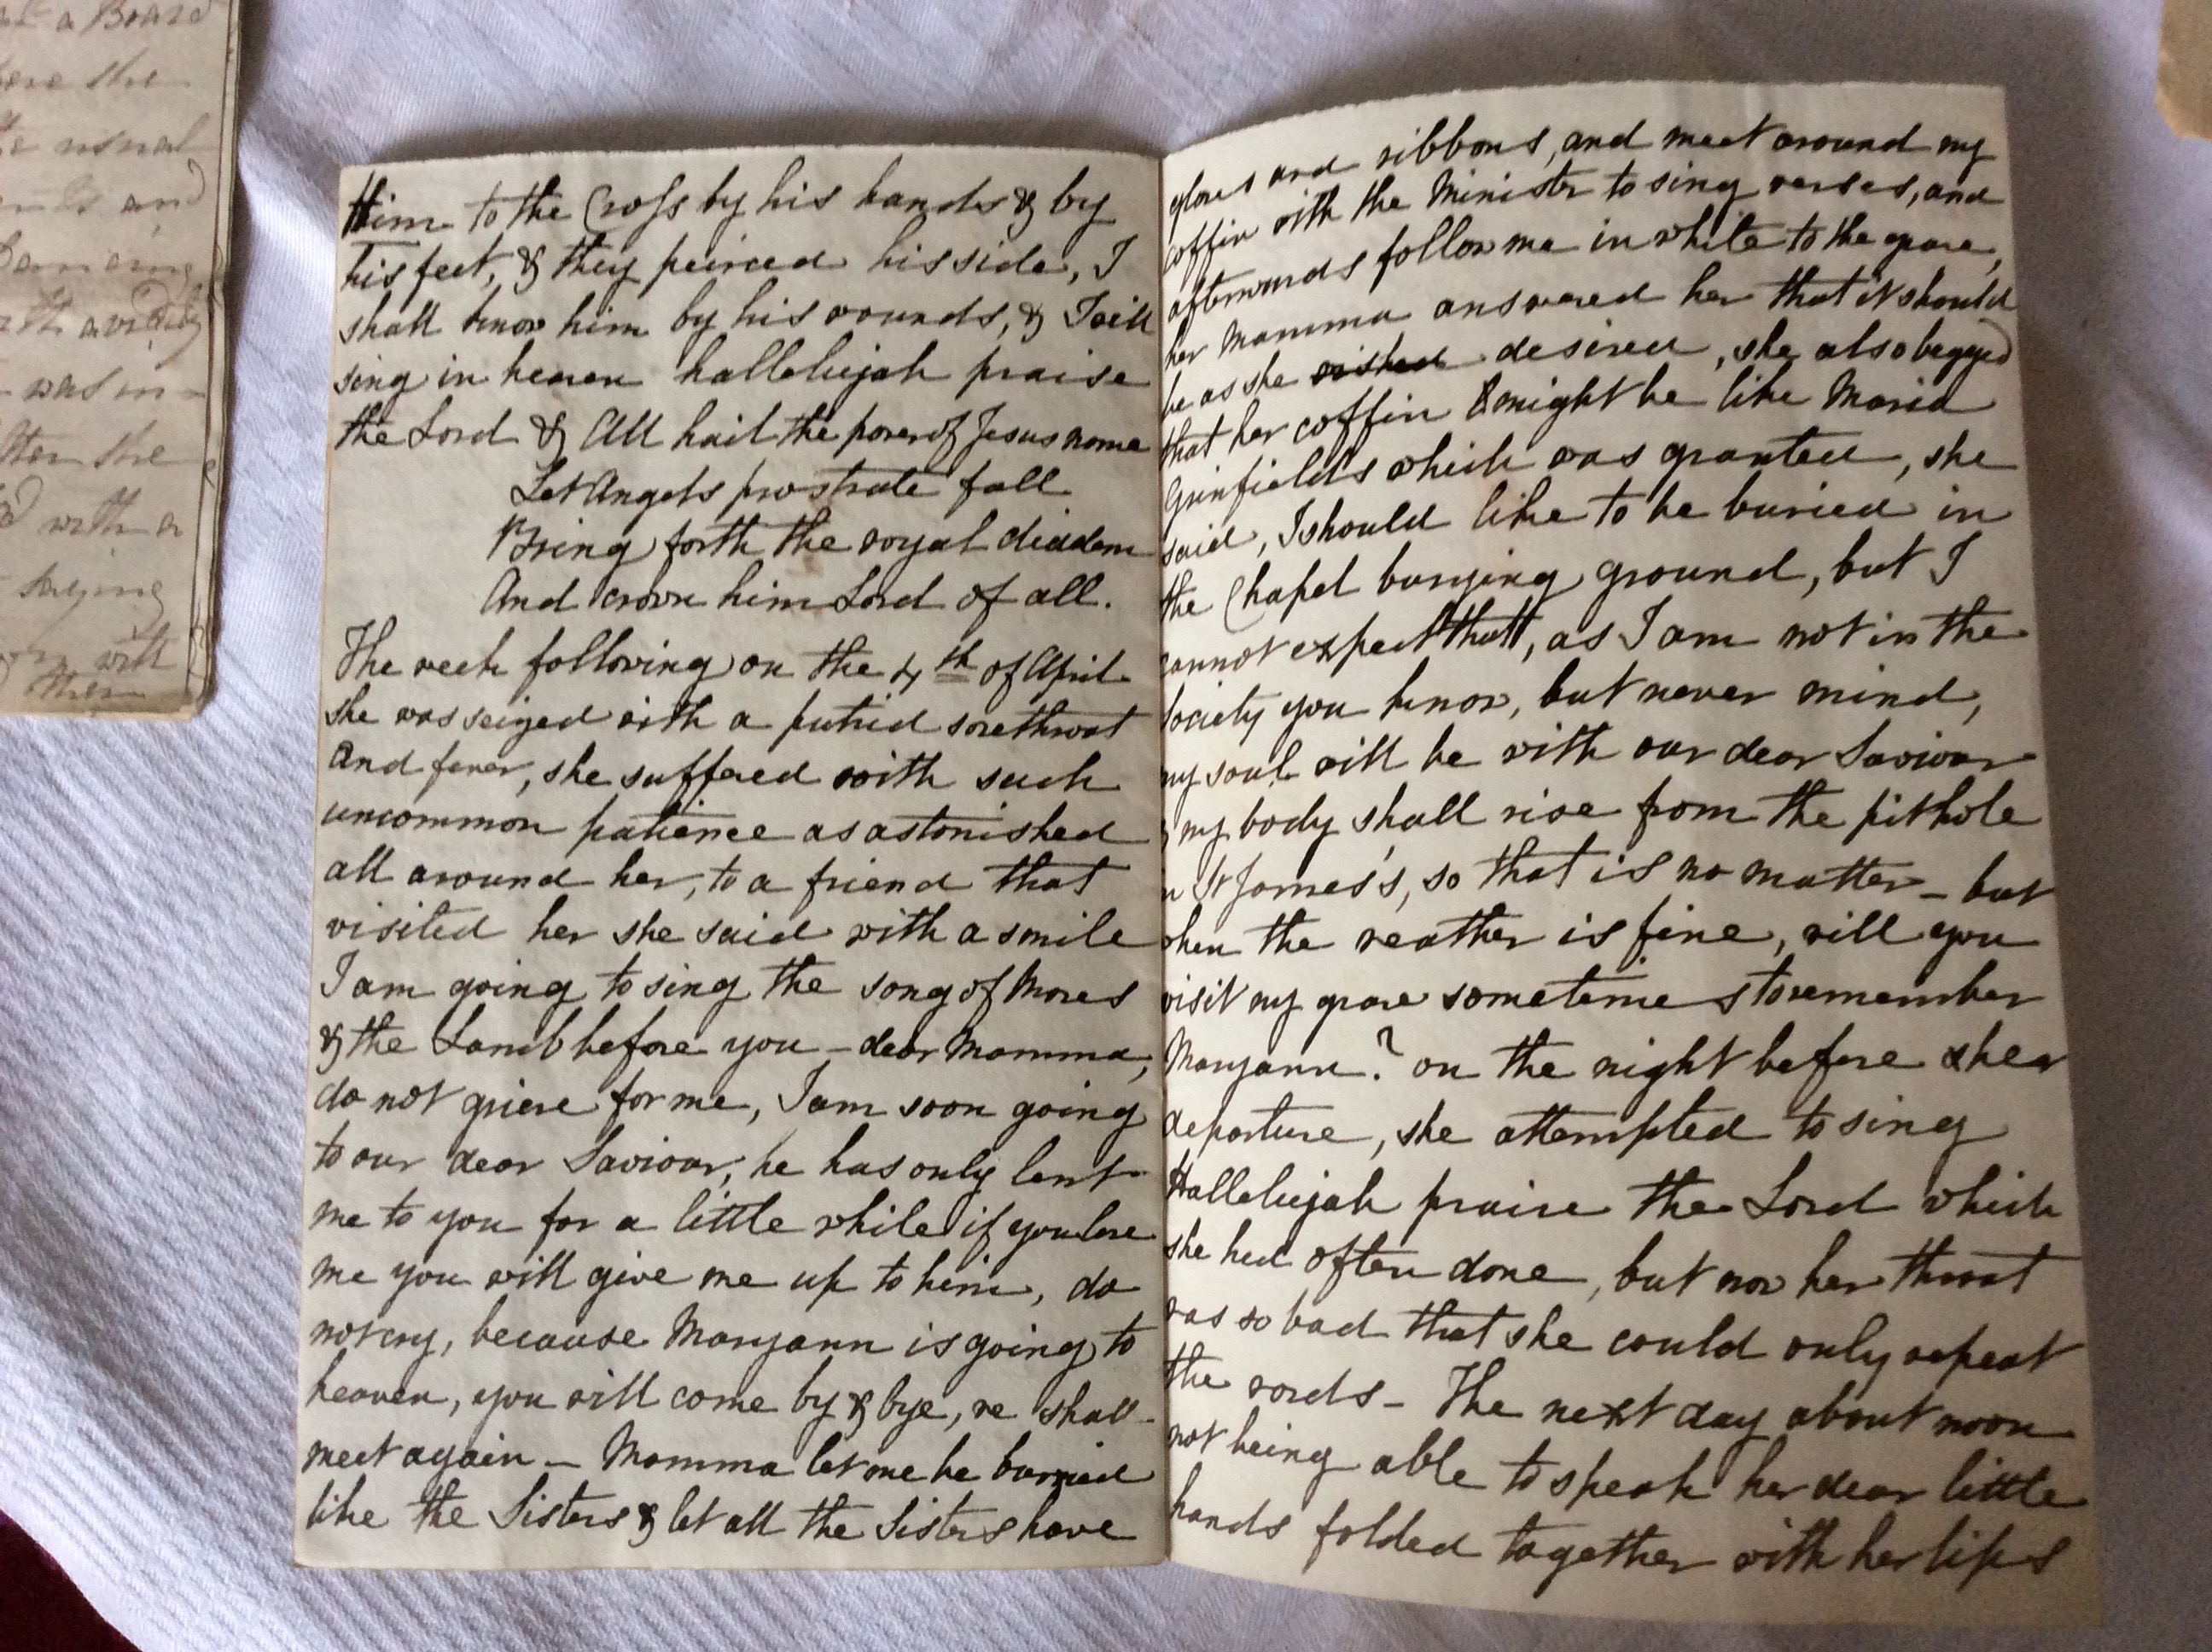 at a Board
here she
usual
and
Dancing
with avidity
was in-
After she
with a
saying
will
then
Him to the Cross by his hands & by
his feet, & they peirced his side, I
shall know him by his wounds, & I will
sing in heaven hallelujah praise
the Lord & All hail the power of Jesus name
Let Angels prostrate fall
Bring forth the royal diadem
And crown him Lord of all.
The week following on the 4th of April
she was seized with a putrid sorethroat
and fever, she suffered with such
uncommon patience as astonished
all around her, to a friend that
visited her she said with a smile
I am going to sing the song of Moses
& the Lamb before you – dear Mamma,
do not grieve for me, I am soon going
to our dear Saviour, he has only lent
me to you for a little while if you love
me you will give me up to him, do
not cry, because Maryann is going to
heaven, you will come by & bye, we shall
meet again – Mamma let me be burried
like the Sisters & let all the Sisters have
gloves and ribbons, and meet around my
coffin with the Minister to sing verses, and
afterwards follow me in white to the grave,
her Mamma answered her that it should
be as she wished desired, she also begged
that her coffin might be like Maria
Grinfield's which was granted, she
said, I should like to be buried in
the Chapel burying ground, but I
cannot expect that, as I am not in the
Society you know, but never mind,
my soul will be with our dear Saviour
& my body shall rise from the pithole
in St James's, so that is no matter – but
when the weather is fine, will you
visit my grave sometimes to remember
Maryann? on the night before her
departure, she attempted to sing
Hallelujah praise the Lord which
she had often done, but now her throat
was so bad that she could only repeat
the words – The next day about noon
not being able to speak her dear little
hands folded together with her lips